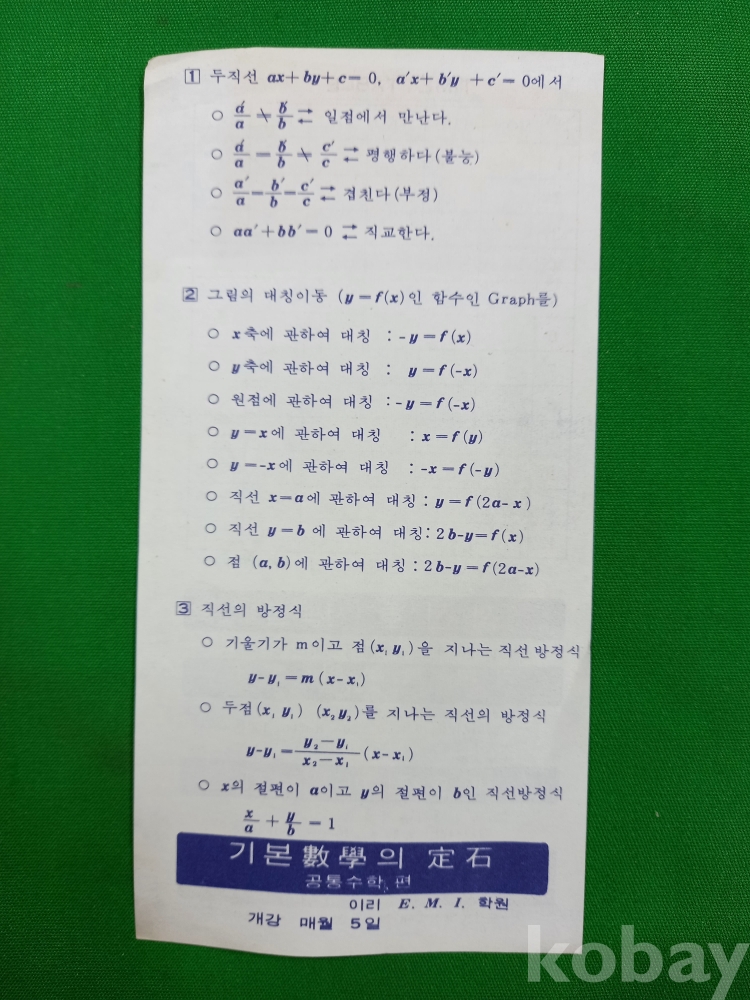 1 두직선 ax+by+c=0, a′x+b′y +c′=0에서
○ a′/a ≠ b′/b ⇄ 일점에서 만난다.
○ a′/a = b′/b ≠ c′/c ⇄ 평행하다(불능)
○ a′/a = b′/b = c′/c ⇄ 겹친다(부정)
○ aa′+bb′=0 ⇄ 직교한다.
2 그림의 대칭이동 (y=f(x)인 함수인 Graph를)
○ x축에 관하여 대칭 : -y=f(x)
○ y축에 관하여 대칭 : y=f(-x)
○ 원점에 관하여 대칭 : -y=f(-x)
○ y=x에 관하여 대칭 : x=f(y)
○ y=-x에 관하여 대칭 : -x=f(-y)
○ 직선 x=a에 관하여 대칭 : y=f(2a-x)
○ 직선 y=b 에 관하여 대칭 : 2b-y=f(x)
○ 점 (a,b)에 관하여 대칭 : 2b-y=f(2a-x)
3 직선의 방정식
○ 기울기가 m이고 점(x₁ y₁)을 지나는 직선방정식
y-y₁=m(x-x₁)
○ 두점(x₁ y₁) (x₂y₂)를 지나는 직선의 방정식
y-y₁=(y₂-y₁)/(x₂-x₁)(x-x₁)
○ x의 절편이 a이고 y의 절편이 b인 직선방정식
x/a + y/b = 1
기본數學의 定石
공통수학 편
이리 E. M. I. 학원
개강 매월 5일
kobay